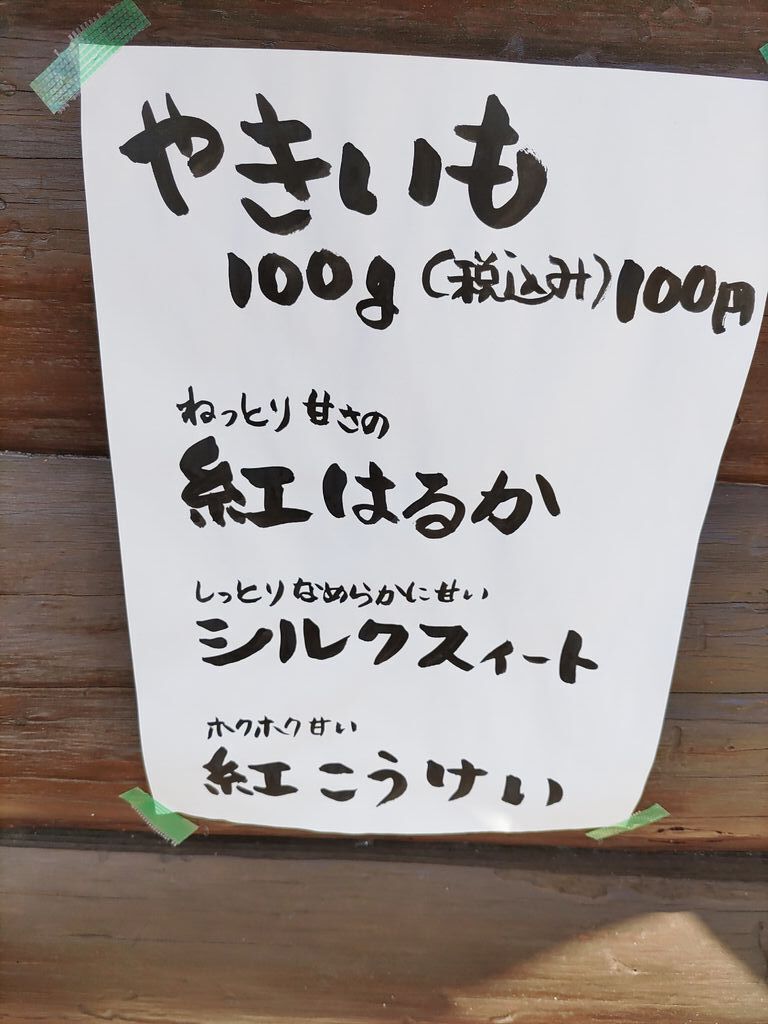 やきいも
100g (税込み) 100円
ねっとり甘さの
紅はるか
しっとりなめらかに甘い
シルクスィート
ホクホク甘い
紅こうけい